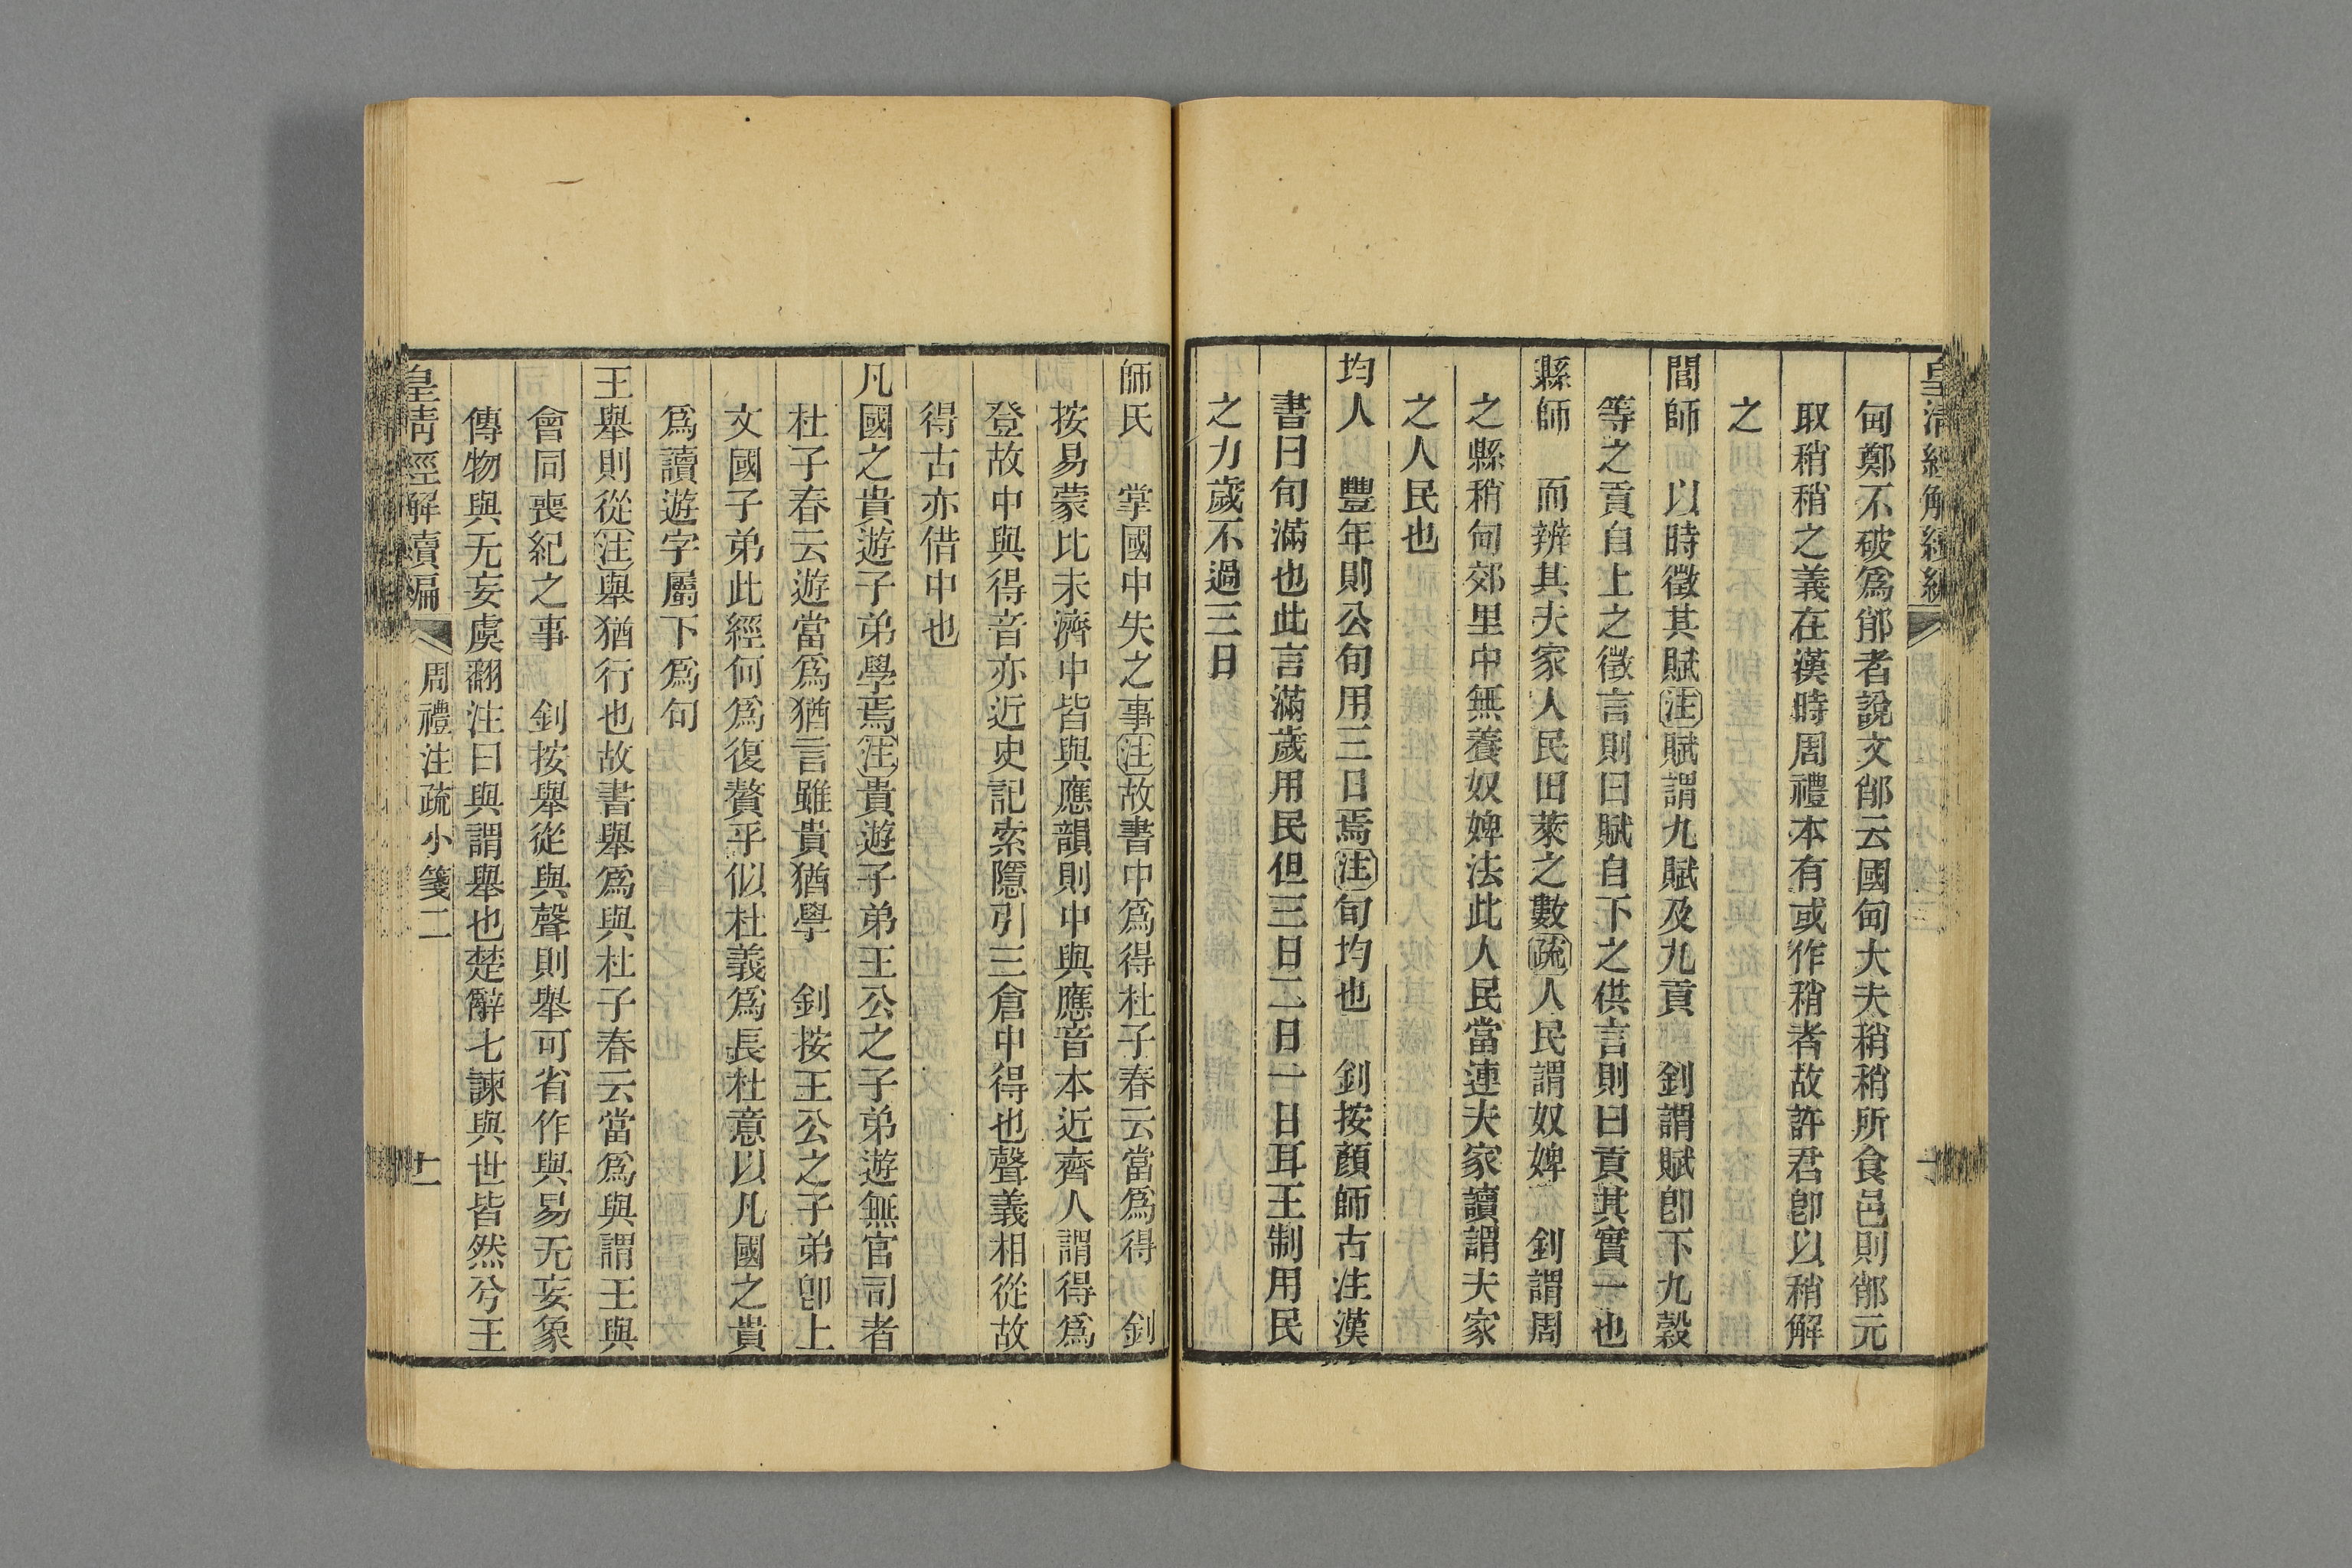 甸鄭不破爲鄁者說文鄁云國甸大夫稍稍所食邑則鄁元
取稍稍之義在漢時周禮本有或作稍者故許君卽以稍解
之
閭師　以時徵其賦注賦謂九賦及九貢　釗謂賦卽下九穀
等之貢自上之徵言則曰賦自下之供言則曰貢其實一也
縣師　而辨其夫家人民田萊之數疏人民謂奴婢　釗謂周
之縣稍甸郊里中無養奴婢法此人民當連夫家讀謂夫家
之人民也
均人　豐年則公旬用三日焉注旬均也　釗按顏師古注漢
書曰旬滿也此言滿歲用民但三日二日一日耳王制用民
之力歲不過三日
師氏　掌國中失之事注故書中爲得杜子春云當爲得　釗
按易蒙比未濟中皆與應韻則中與應音本近齊人謂得爲
登故中與得音亦近史記索隱引三倉中得也聲義相從故
得古亦借中也
凡國之貴遊子弟學焉注貴遊子弟王公之子弟遊無官司者
杜子春云遊當爲猶言雖貴猶學　釗按王公之子弟卽上
文國子弟此經何爲復贅乎似杜義爲長杜意以凡國之貴
爲讀遊字屬下爲句
王舉則從注舉猶行也故書舉爲與杜子春云當爲與謂王與
會同喪紀之事　釗按舉從與聲則舉可省作與易无妄象
傳物與无妄虞翻注曰與謂舉也楚辭七諫與世皆然兮王
皇清經解續編　周禮注疏小箋二　十一